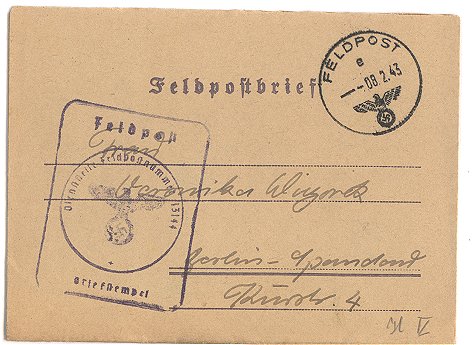 FELDPOST
e
-08.2.43
Feldpostbrief
Feldpost
Dienststelle Feldpostnummer 13144
Briefstempel
Frau
Veronika
Berlin-Spandau
Kurstr. 4